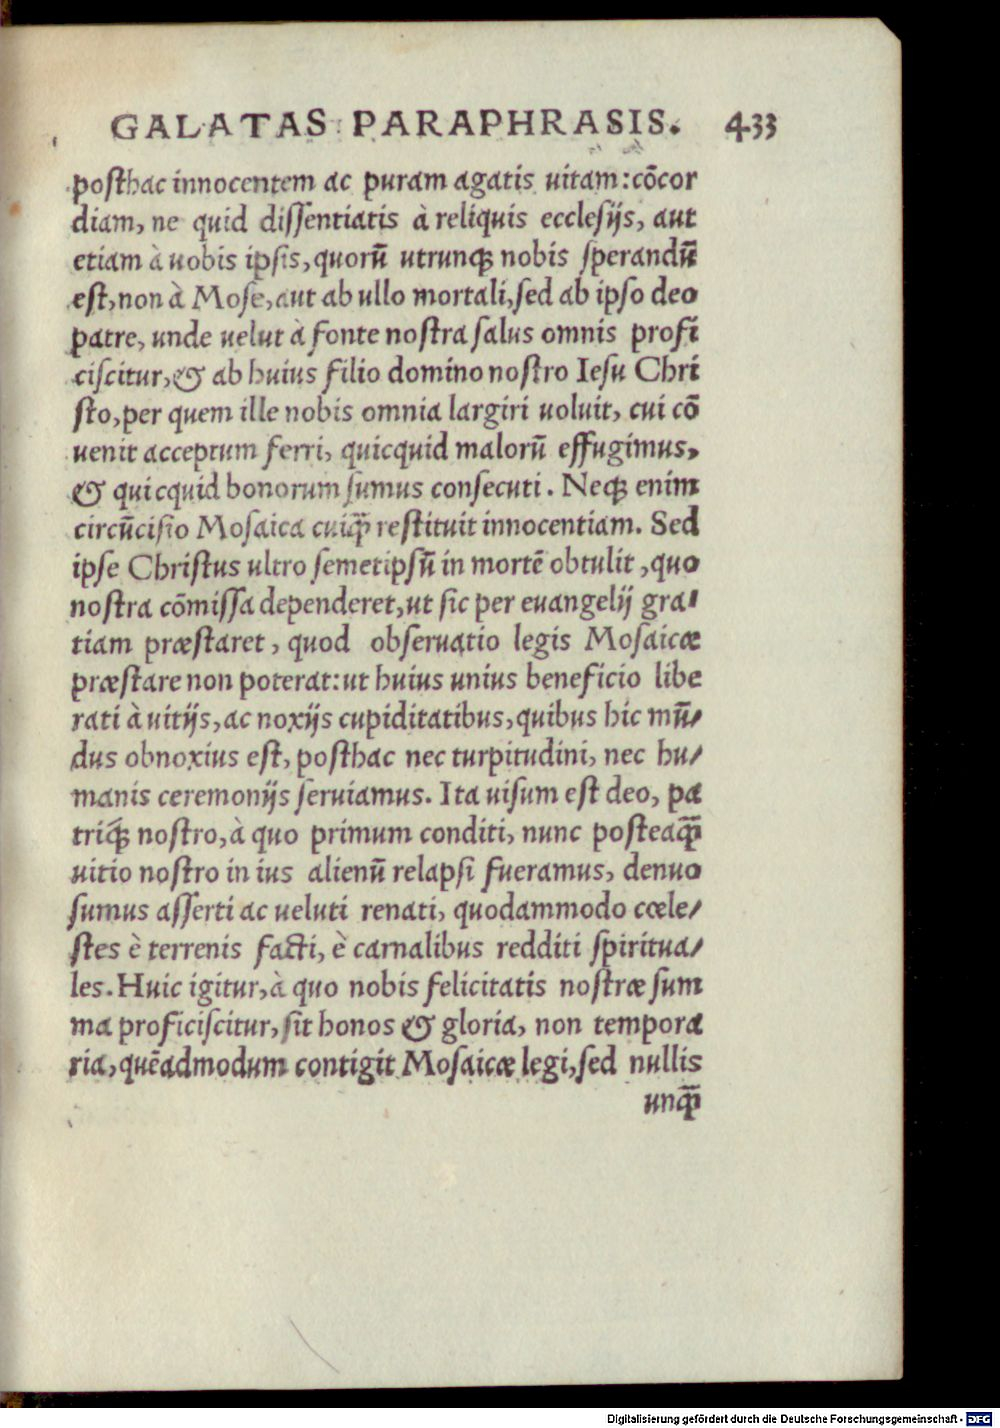 GALATAS PARAPHRASIS. 433
posthac innocentem ac puram agatis uitam: cõcor
diam, ne quid dissentiatis à reliquis ecclesijs, aut
etiam à uobis ipsis, quorũ utrunq; nobis sperandũ
est, non à Mose, aut ab ullo mortali, sed ab ipso deo
patre, unde uelut à fonte nostra salus omnis profi
ciscitur, & ab huius filio domino nostro Iesu Chri
sto, per quem ille nobis omnia largiri uoluit, cui cõ
uenit acceptum ferri, quicquid malorũ effugimus,
& quicquid bonorum sumus consecuti. Neq; enim
circũcisio Mosaica cuiq̃ restituit innocentiam. Sed
ipse Christus ultro semetipsũ in mortẽ obtulit, quo
nostra cõmissa dependeret, ut sic per euangelij gra/
tiam præstaret, quod obseruatio legis Mosaicæ
præstare non poterat: ut huius unius beneficio libe
rati à uitijs, ac noxijs cupiditatibus, quibus hic mũ/
dus obnoxius est, posthac nec turpitudini, nec hu/
manis ceremonijs seruiamus. Ita uisum est deo, pa
triq́; nostro, à quo primum conditi, nunc posteaq̃
uitio nostro in ius alienũ relapsi fueramus, denuo
sumus asserti ac ueluti renati, quodammodo cœle/
stes è terrenis facti, è carnalibus redditi spiritua/
les. Huic igitur, à quo nobis felicitatis nostræ sum
ma proficiscitur, sit honos & gloria, non tempora
ria, quẽadmodum contigit Mosaicæ legi, sed nullis
unq̃
Digitalisierung gefördert durch die Deutsche Forschungsgemeinschaft - DFG